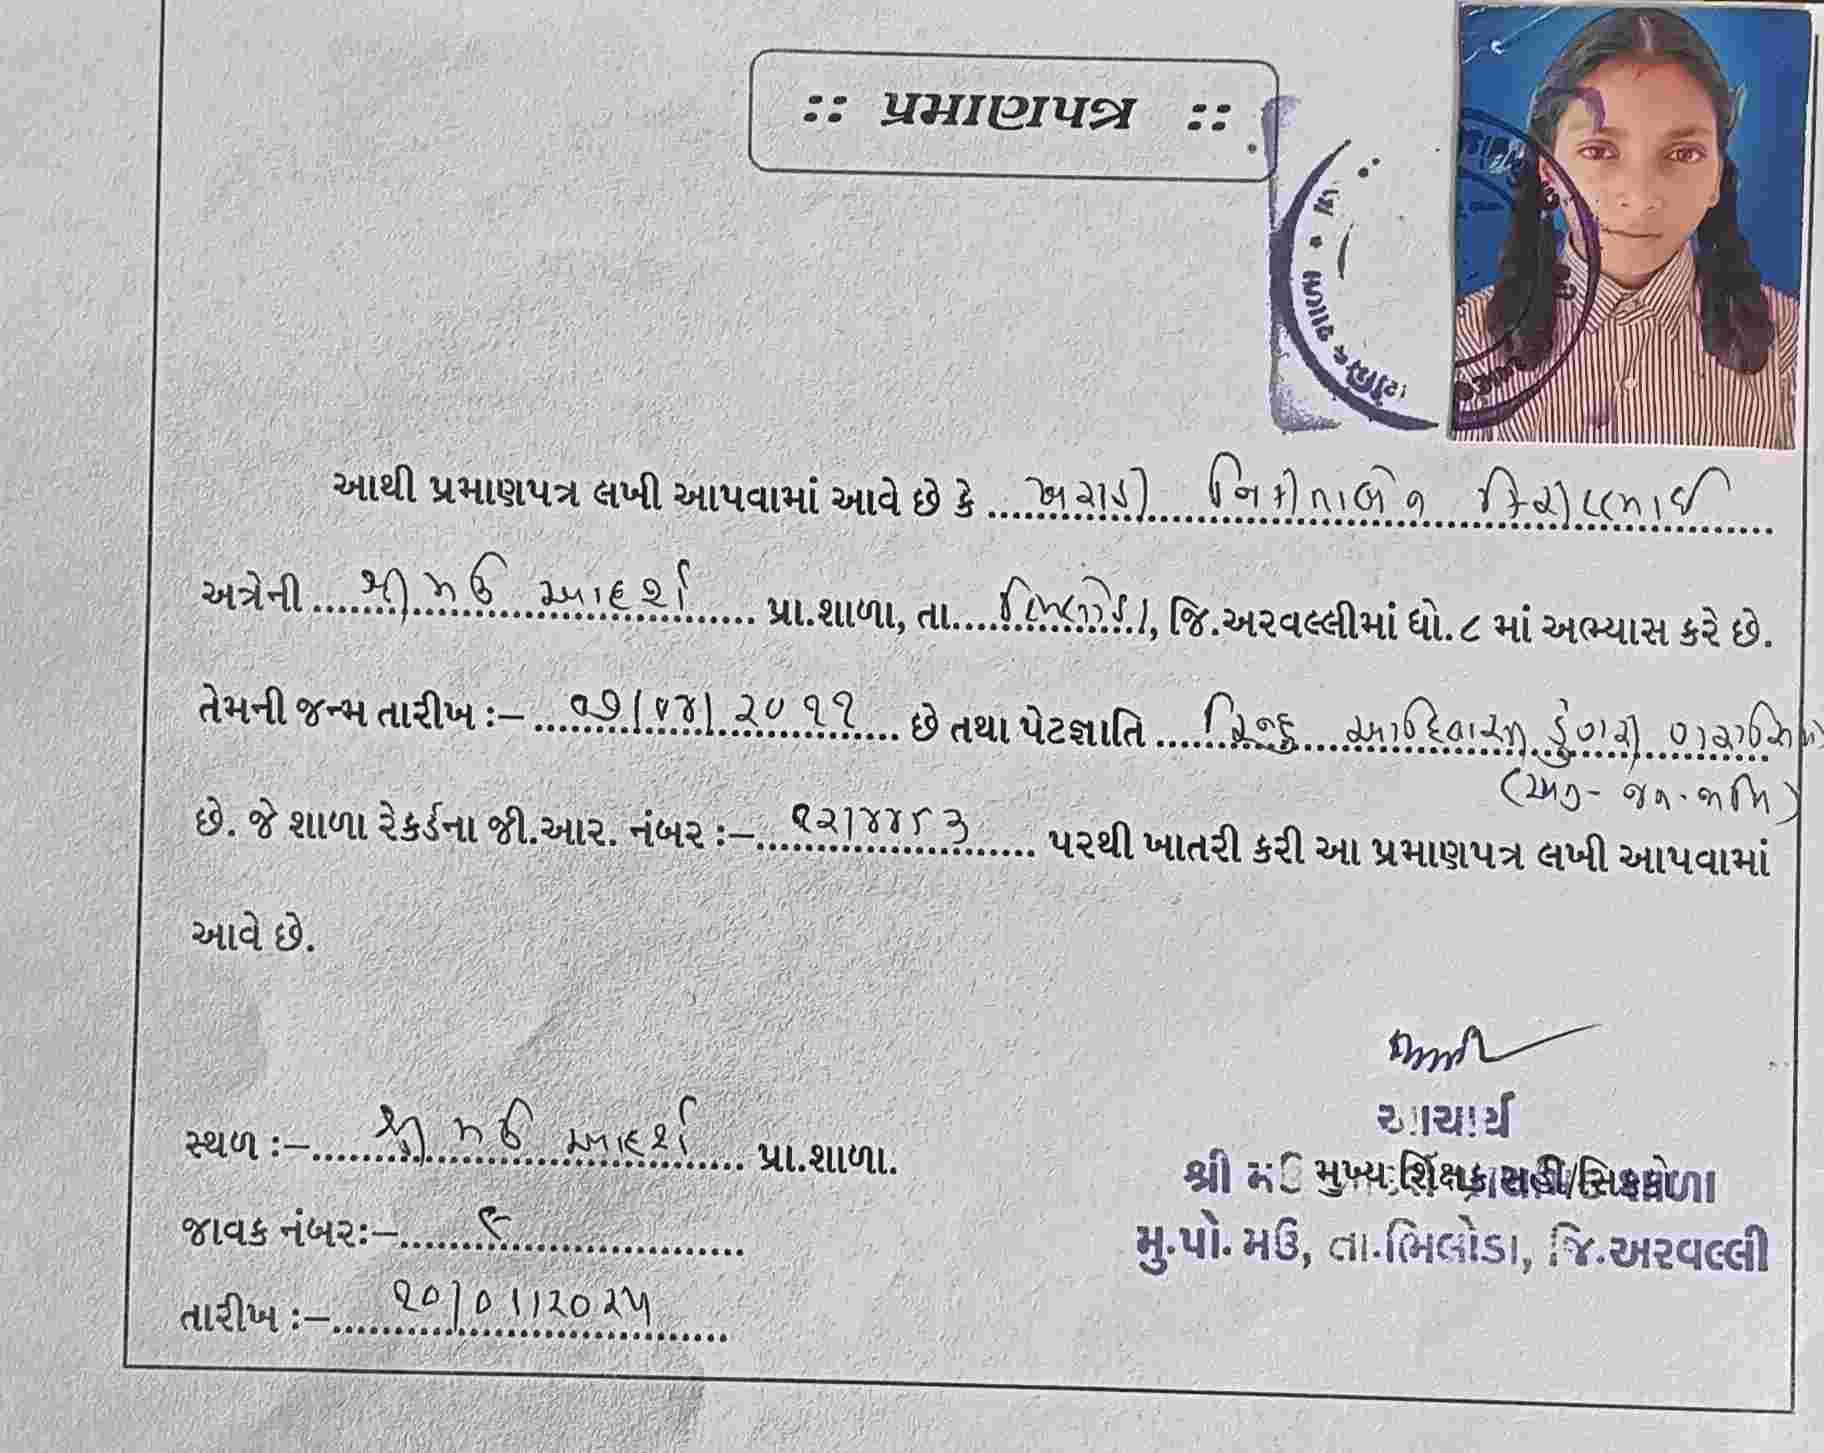 :: પ્રમાણપત્ર ::
આથી પ્રમાણપત્ર લખી આપવામાં આવે છે કે ખરાડી નિકીતાબેન
અત્રેની શ્રી મઉ આદર્શ પ્રા.શાળા, તા. ભિલોડા, જિ.અરવલ્લીમાં ધો.૮ માં અભ્યાસ કરે છે.
તેમની જન્મ તારીખ :– ૦૭/૦૪/૨૦૧૧ છે તથા પેટજ્ઞાતિ હિન્દુ આદિવાસી ડુંગરી ગરાસિયા
(અનુ-જન-જાતિ)
છે. જે શાળા રેકર્ડના જી.આર. નંબર :– પરથી ખાતરી કરી આ પ્રમાણપત્ર લખી આપવામાં
આવે છે.
આચાર્ય
સ્થળ :– શ્રી મઉ આદર્શ પ્રા.શાળા.
શ્રી મઉ મુખ્ય શિક્ષક સહી/સિક્કો
જાવક નંબર:– ૯
મુ.પો. મઉ, તા.ભિલોડા, જિ.અરવલ્લી
તારીખ :– ૨૦/૦૧/૨૦૨૫